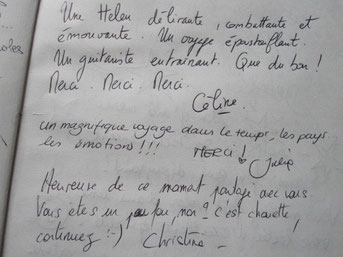 Une Helen délirante, combattante et
émouvante. Un voyage époustouflant.
Un guitariste entraînant. Que du bon !
Merci. Merci. Merci.
Céline.
un magnifique voyage dans le temps, les pays
les émotions !!!
MERCI ! Julie
Heureuse de ce moment partagé avec vous
Vous êtes un peu fou, non ? c'est chouette,
continuez :-) Christine